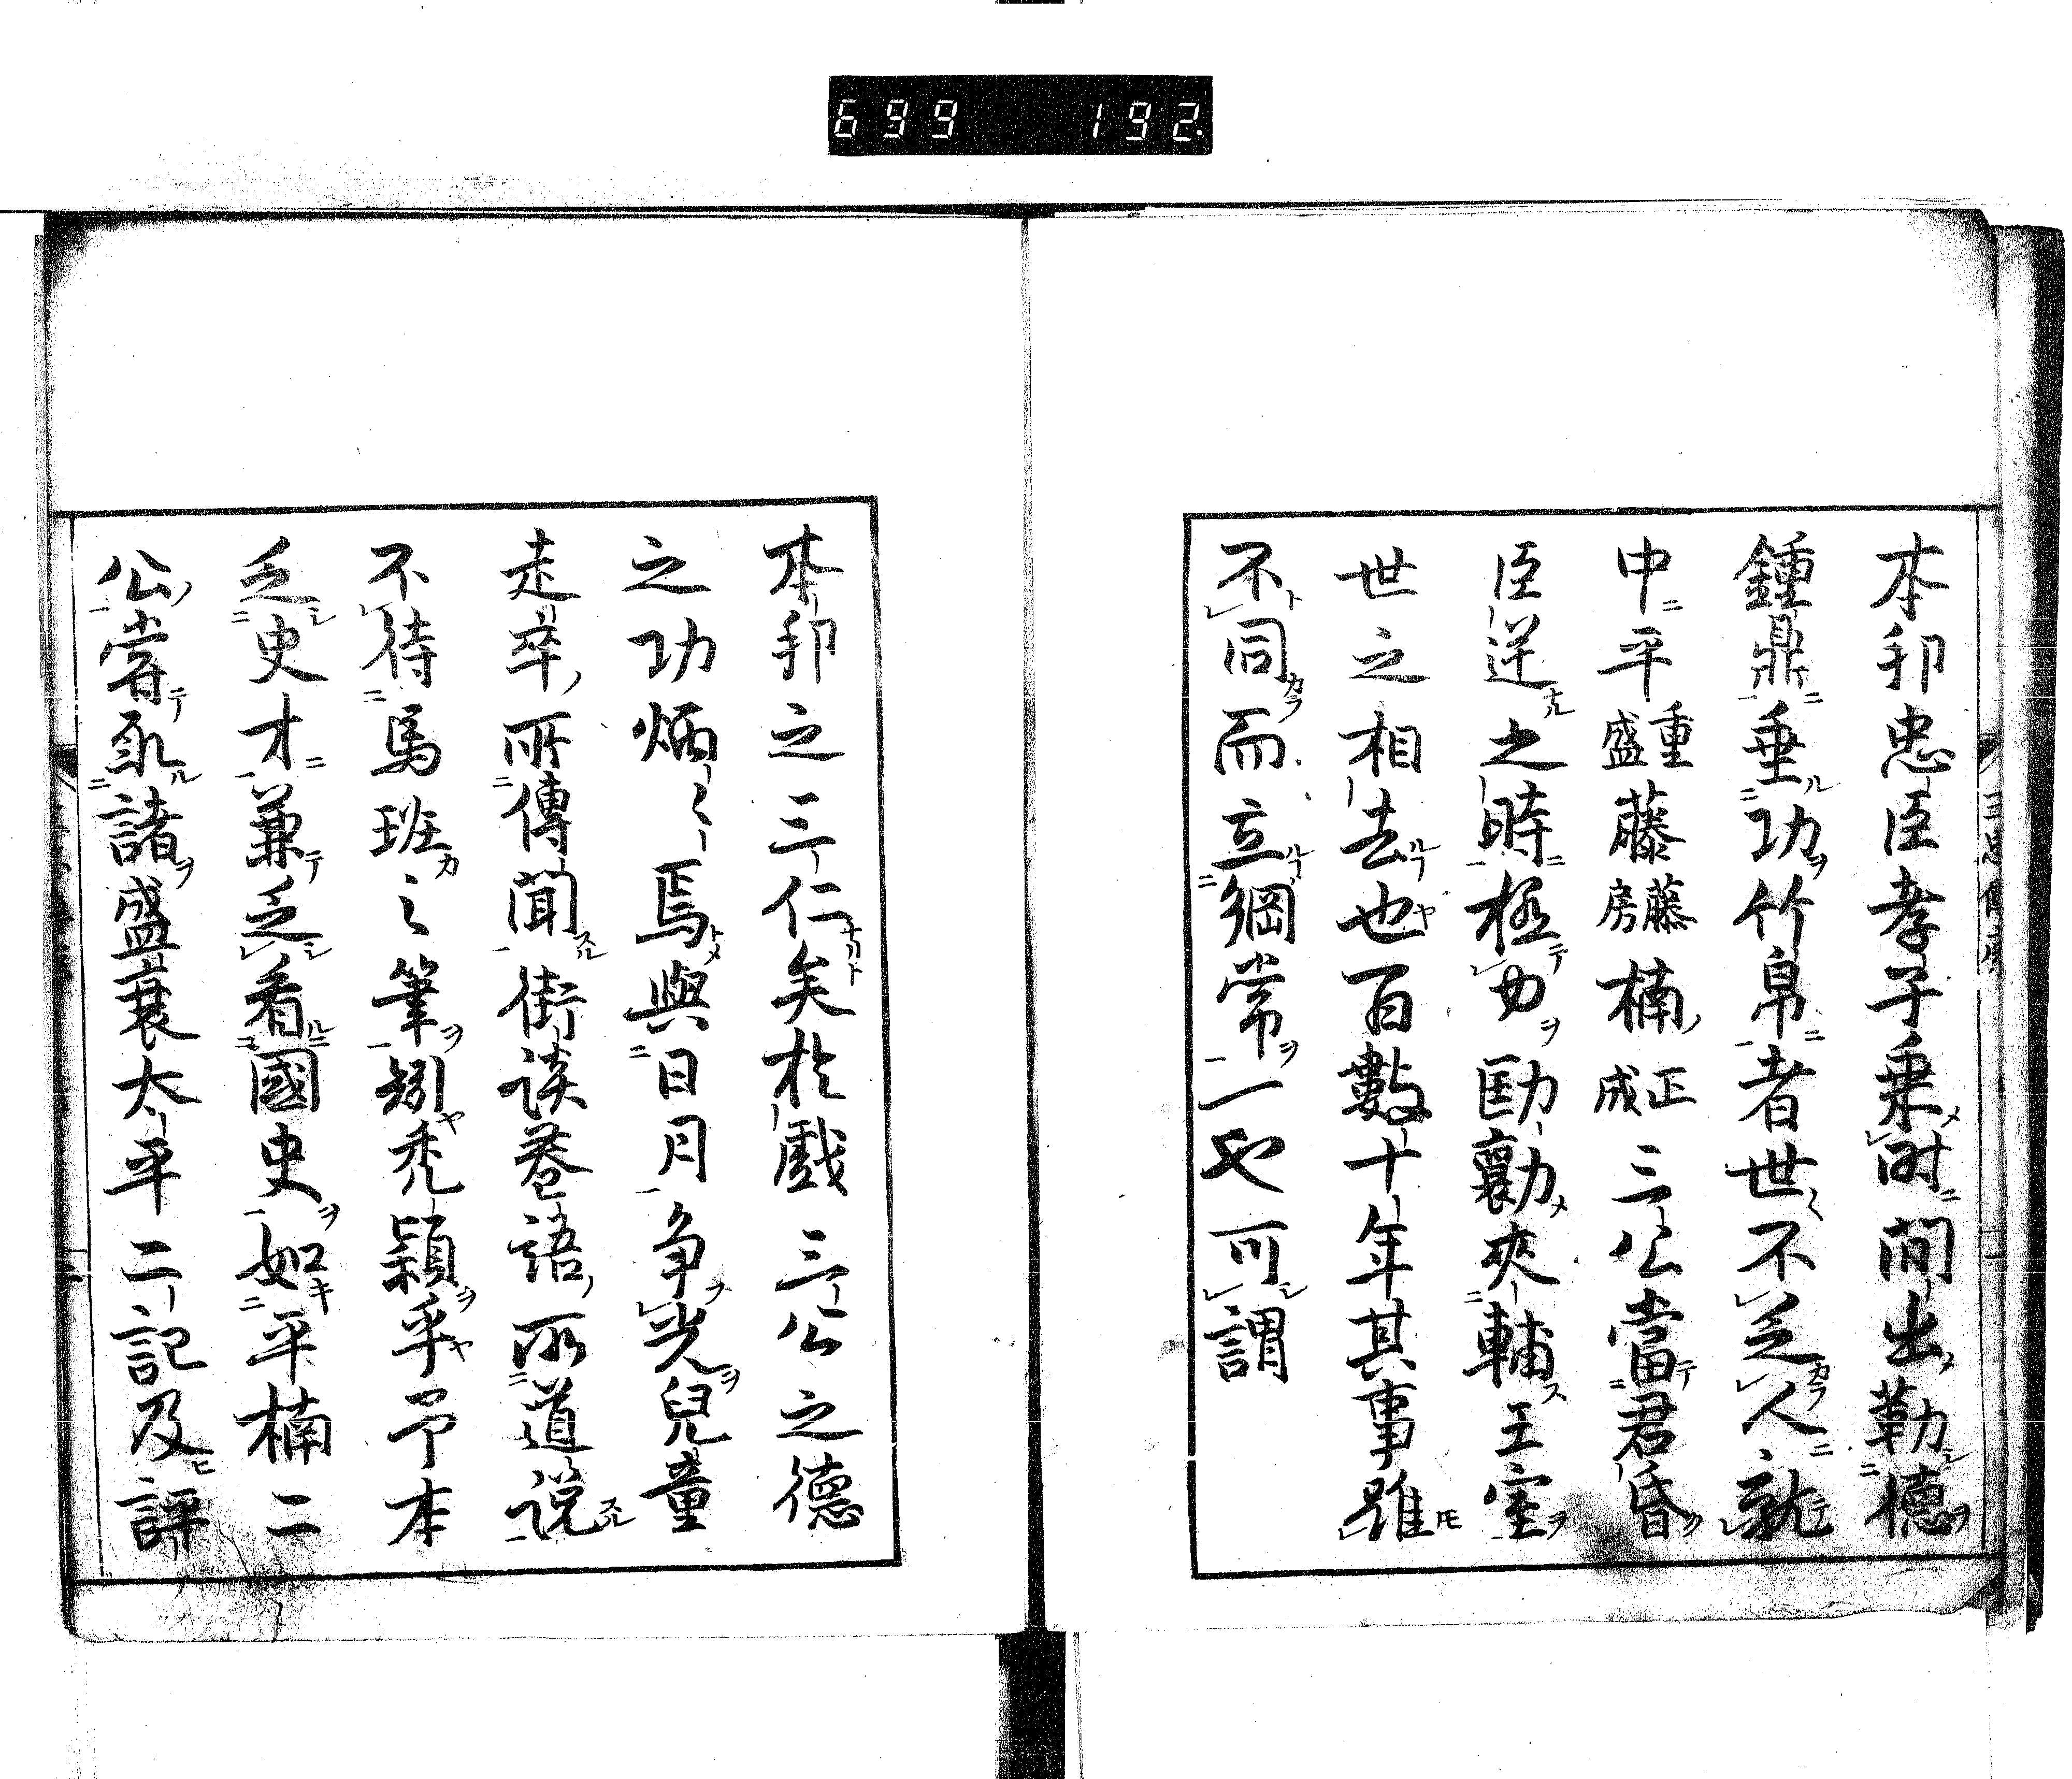 699 192
本邦忠臣孝子乗時間出勒德
鍾鼎垂功竹帛者世〻不乏人就
中平重盛藤藤房楠正成三公當君昏
臣逆之時極力勷勷夾輔王室
世之相去也百數十年其事雖
不同而立綱常一也可謂
本邦之三仁矣於戲三公之德
之功炳〻焉與日月争光兒童
走卒所傳聞街談巷語所道説
不待馬班之筆矧禿穎乎予本
乏史才兼乏看國史如平楠二
公嘗取諸盛衰太平二記及評